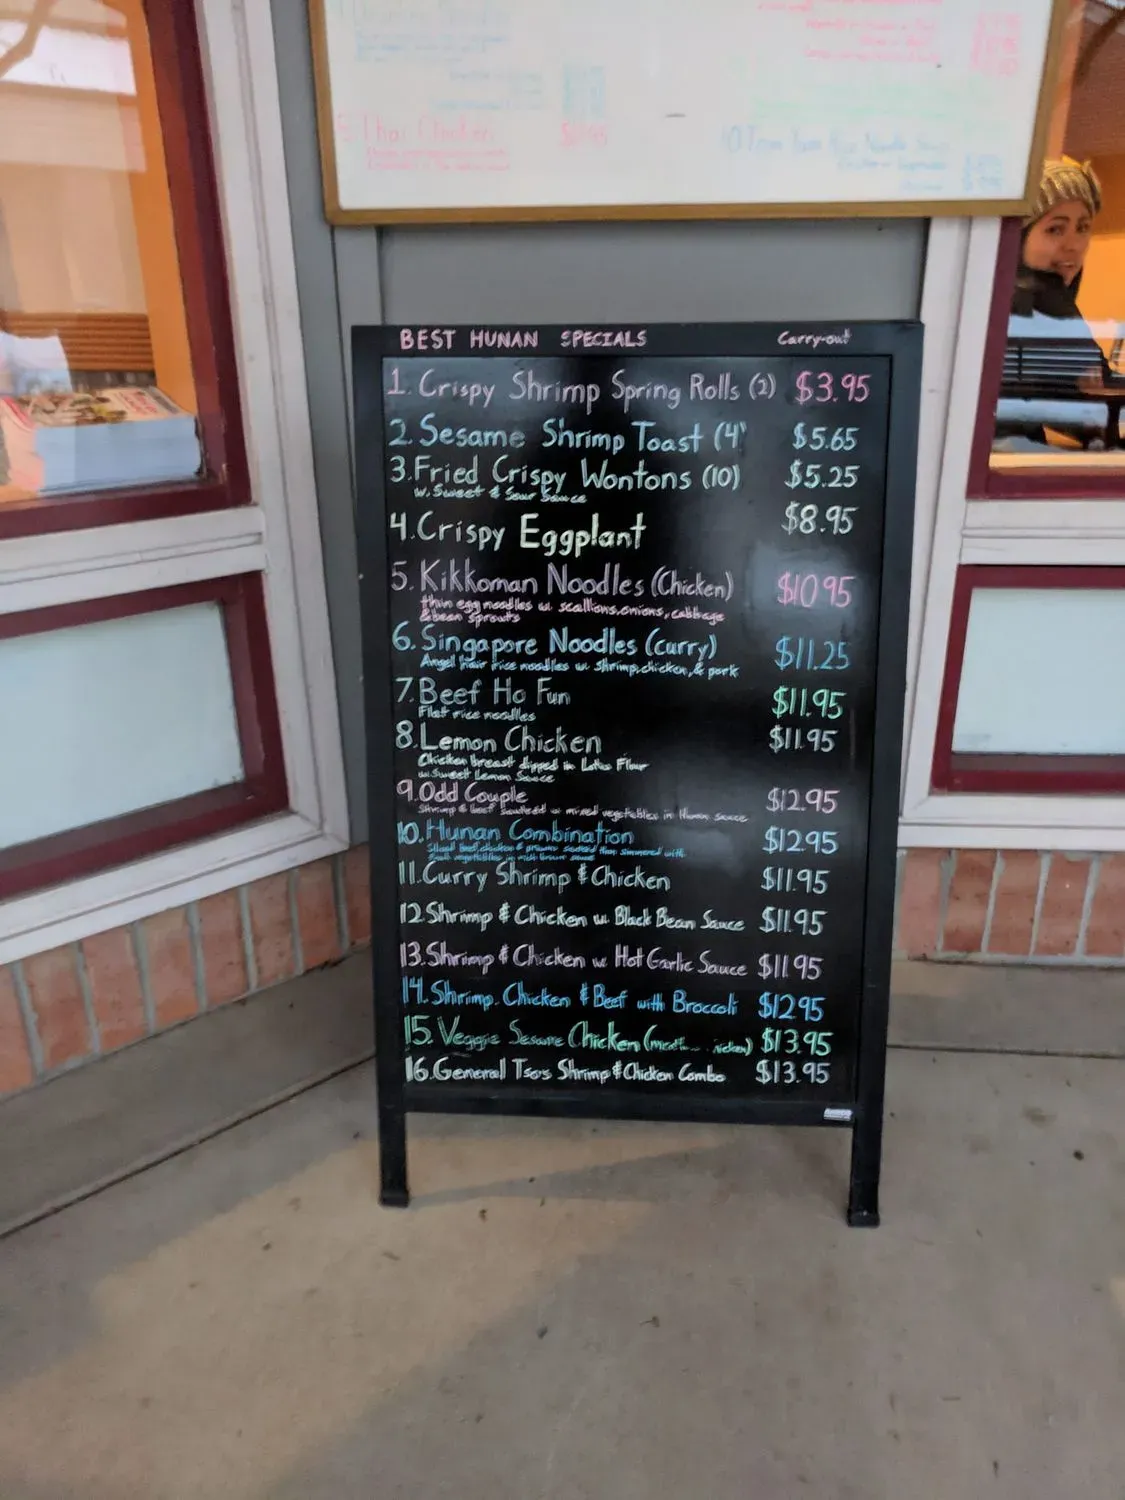 5. Thai Chicken $10.95
BEST HUNAN SPECIALS Carry-out
1. Crispy Shrimp Spring Rolls (2) $3.95
2. Sesame Shrimp Toast (4) $5.65
3. Fried Crispy Wontons (10) $5.25
w. Sweet & Sour Sauce
4. Crispy Eggplant $8.95
5. Kikkoman Noodles (Chicken) $10.95
thin egg noodles w. scallions, onions, cabbage
& bean sprouts
6. Singapore Noodles (curry) $11.25
Angel hair rice noodles w. shrimp, chicken, & pork
7. Beef Ho Fun $11.95
Flat rice noodles
8. Lemon Chicken $11.95
Chicken breast dipped in Lotus Flour
w. Sweet Lemon Sauce
9. Odd Couple $12.95
Shrimp & beef sauteed w mixed vegetables in Hunan sauce
10. Hunan Combination $12.95
Sliced beef, chicken & prawns sauteed then simmered with
vegetables in rich brown sauce
11. Curry Shrimp & Chicken $11.95
12. Shrimp & Chicken w. Black Bean Sauce $11.95
13. Shrimp & Chicken w Hot Garlic Sauce $11.95
14. Shrimp, Chicken & Beef with Broccoli $12.95
15. Veggie Sesame Chicken $13.95
16. General Tso's Shrimp & Chicken Combo $13.95